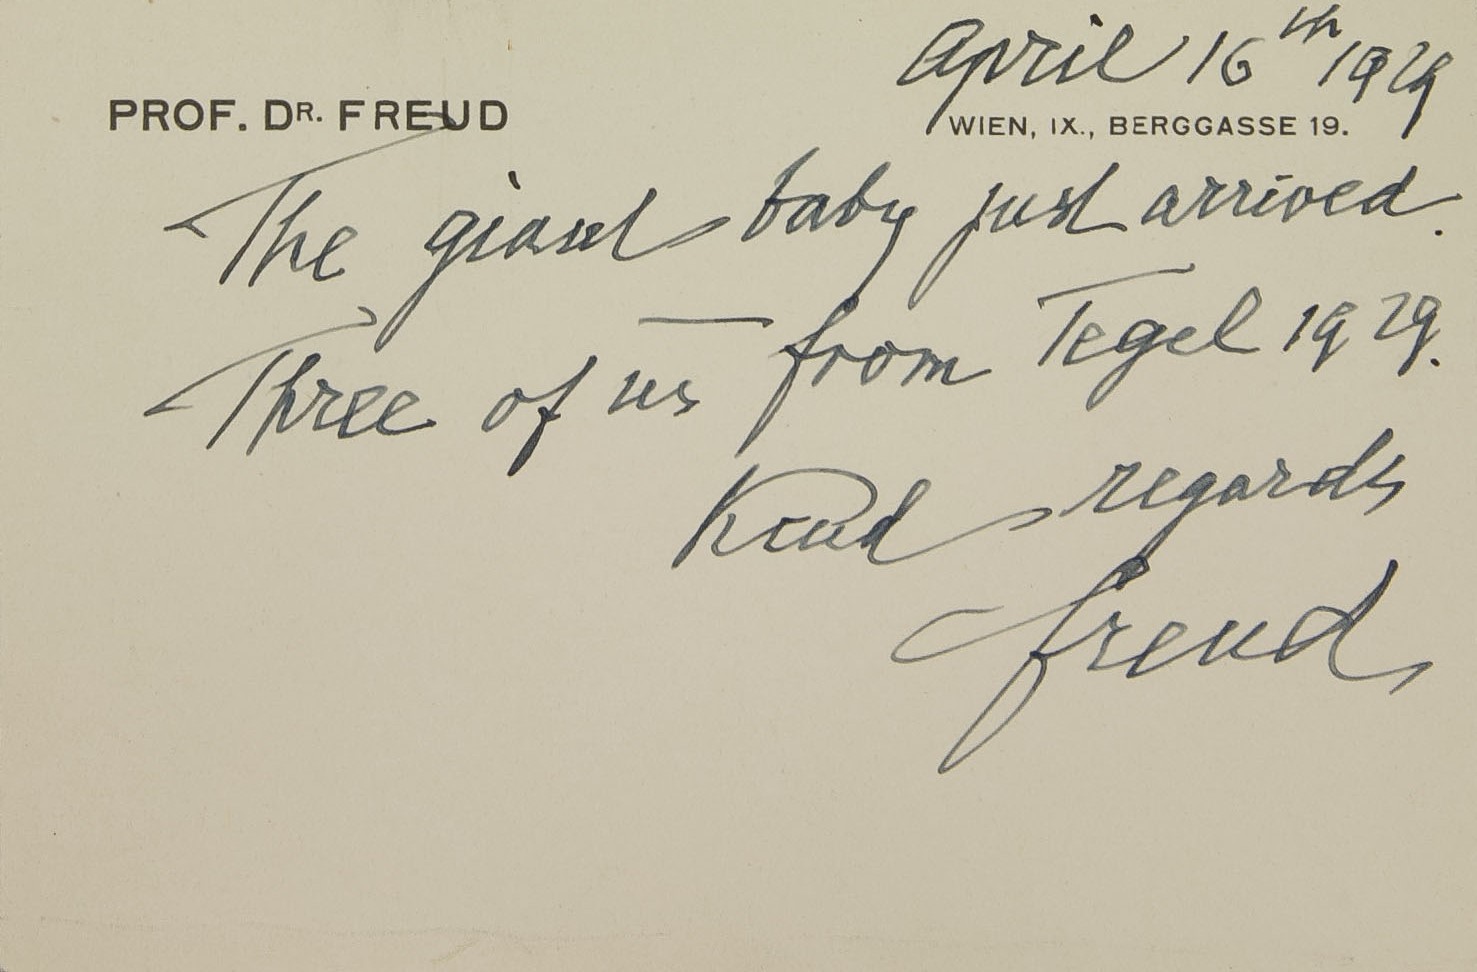 April 16th 1929
PROF. DR. FREUD
WIEN, IX., BERGGASSE 19.
The giant baby just arrived.
Three of us from Tegel 1929.
Kind regards
Freud